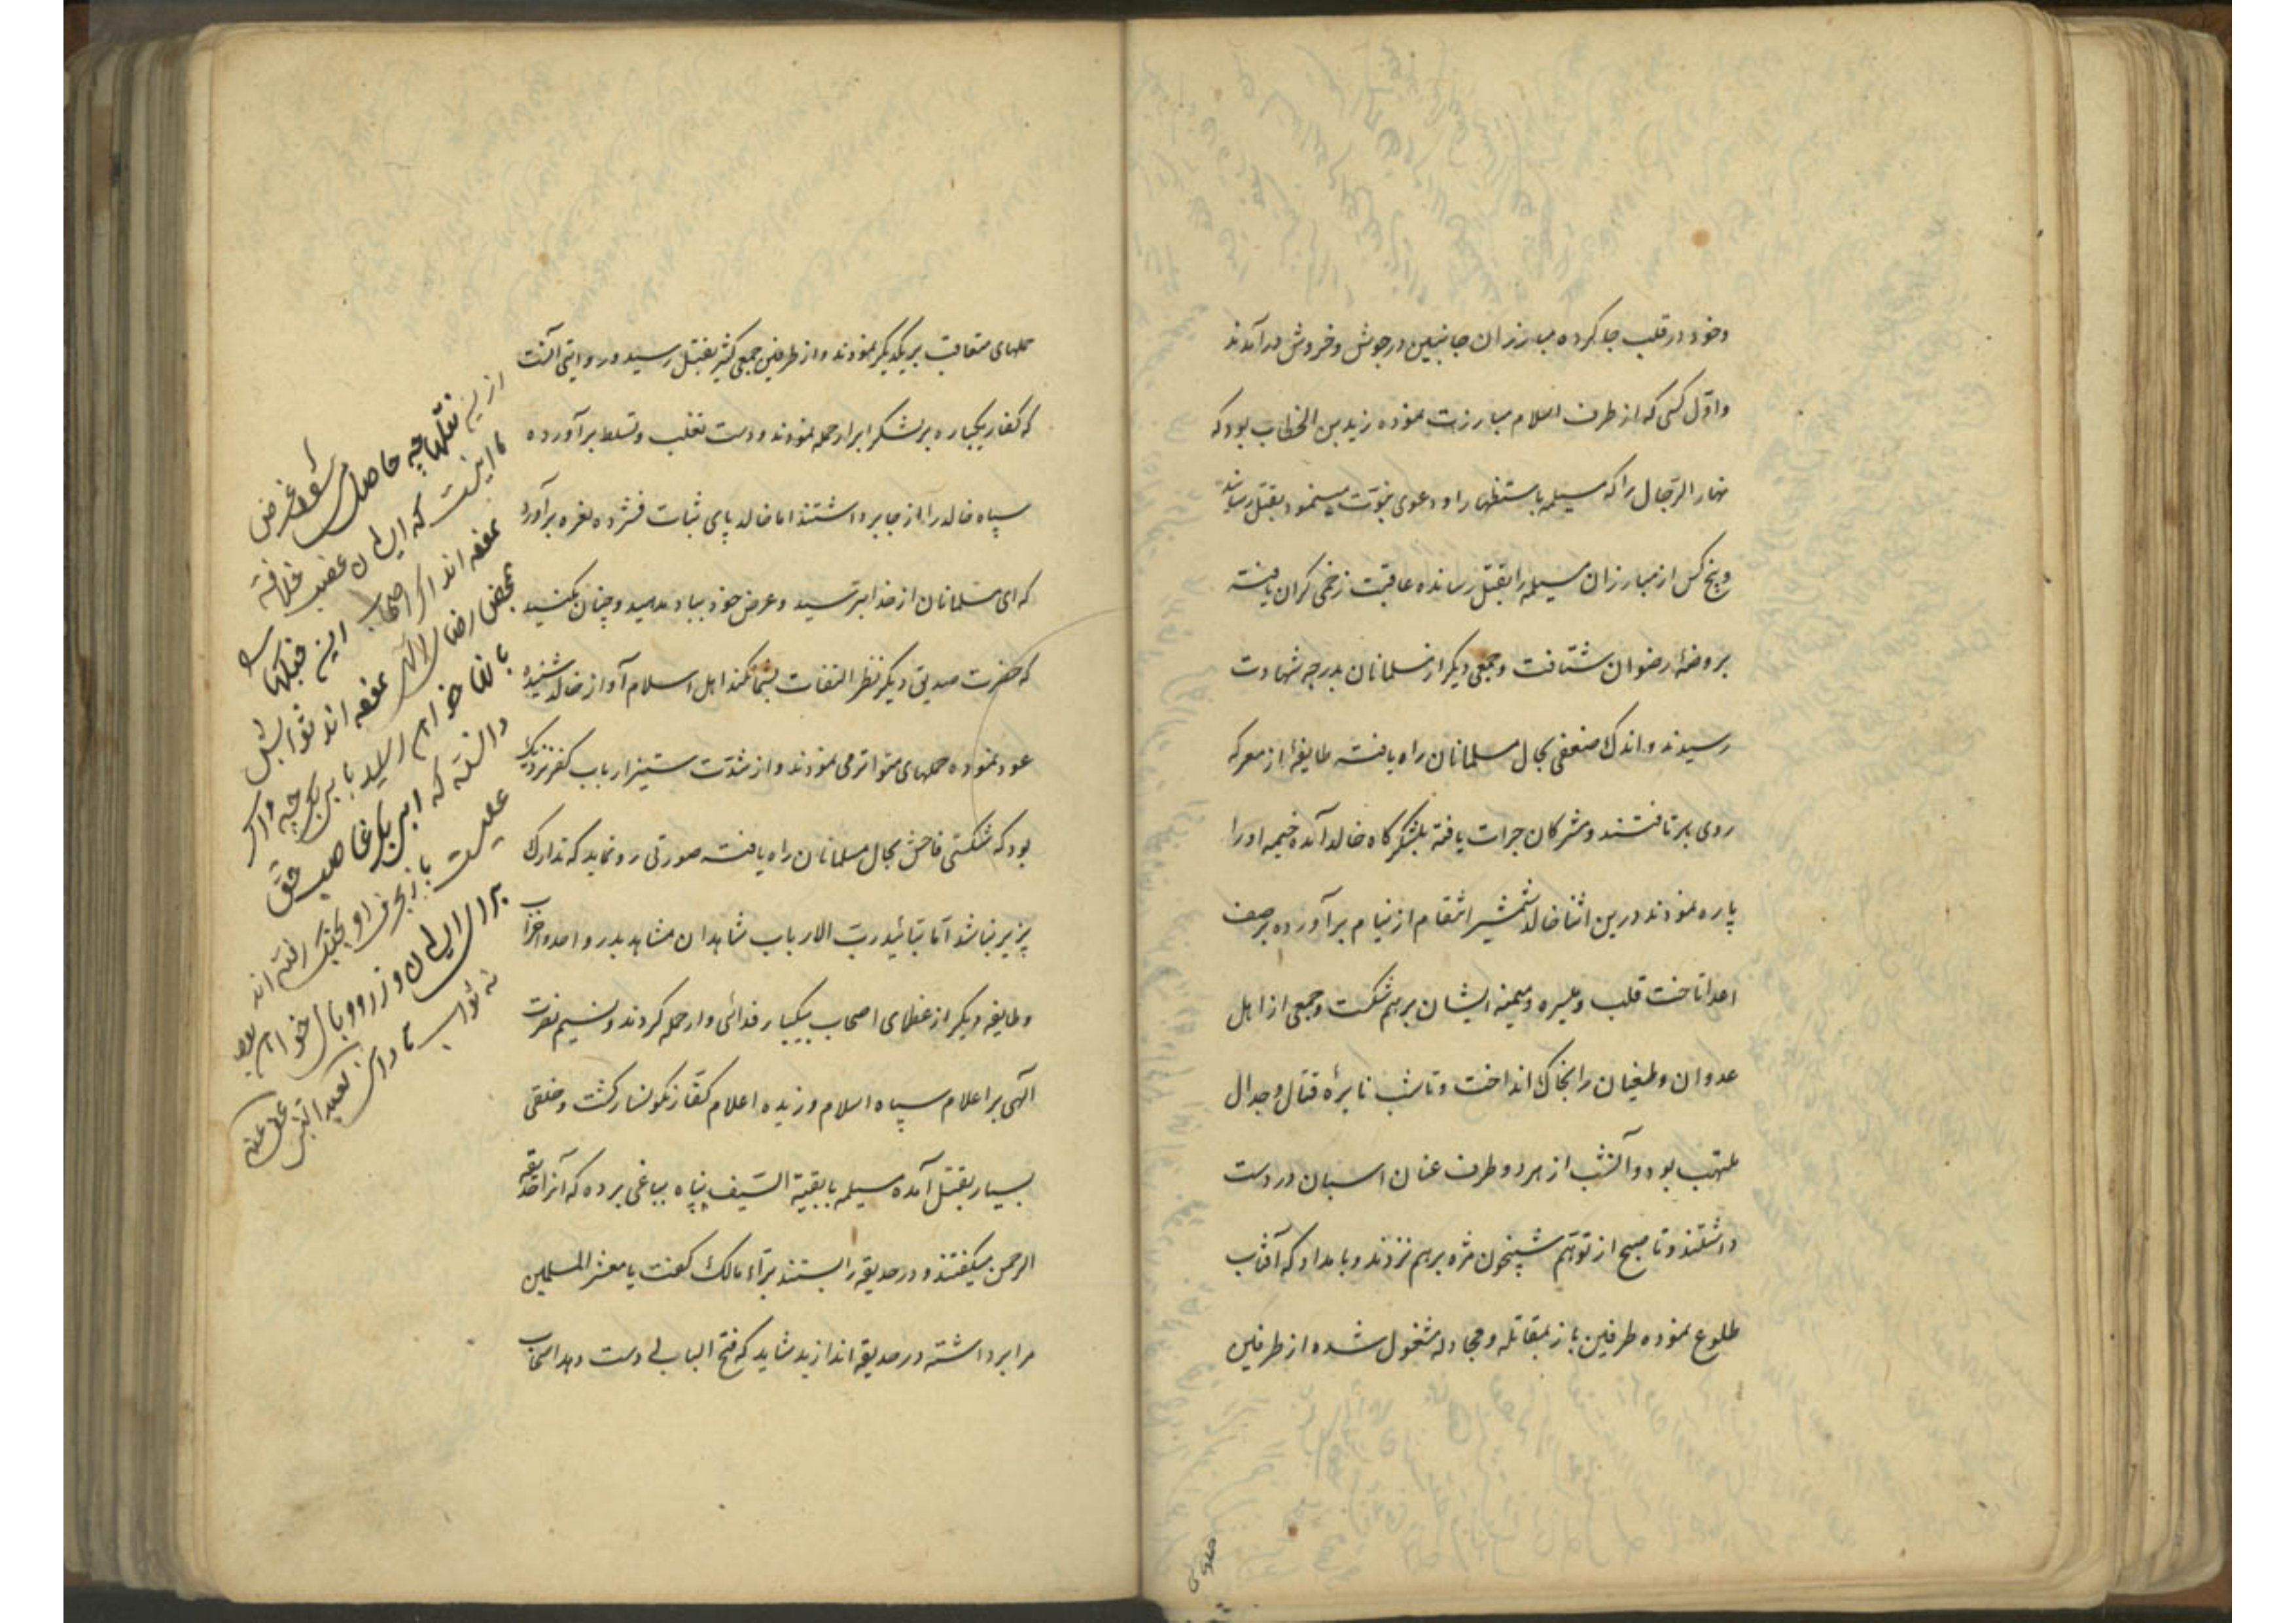 وخود در قلب جا کرده مبارزان جانبین در جوش و خروش در آمدند
و اوّل کسی که از طرف اسلام مبارزت نموده زید بن الخطاب بود که
نهار الرّجال را که مسیلمه باستظهار او دعوی نبوّت مینمود بقتل رسانید
و پنج کس از مبارزان مسیلمه را بقتل رسانده عاقبت زخمی کران یافته
بروضهٔ رضوان شتافت و جمعی دیکر از مسلمانان بدرجه شهادت
رسیدند و اندک ضعفی بحال مسلمانان راه یافته طایفهٔ از معرکه
روی برتافتند و مشرکان جرات یافته بلشکرکاه خالد آمده خیمه او را
پاره نمودند درین اثنا خالد شمشیر انتقام از نیام برآورده برصف
اعدا تاخت قلب و میسره و میمنه ایشان برهم شکست و جمعی از اهل
عدوان و طغیان را بخاک انداخت و تا شب نایرهٔ قتال و جدال
ملتهب بود و آنشب از هر دو طرف عنان اسبان در دست
داشتند و تا صبح از توهّم شبیخون مژه برهم نزدند و بامداد که آفتاب
طلوع نموده طرفین باز بمقاتله و مجادله مشغول شده از طرفین
حملهای
حملهای متعاقب بر یکدیکر نمودند و از طرفین جمعی کثیر بقتل رسید و روایتی آنست
که کفار یکباره بر لشکر ابرار حمله نمودند و دست تغلب و تسلط برآورده
سپاه خالد را از جا برداشتند اما خالد پای ثبات فشرده نعره برآورد
که ای مسلمانان از خدا بترسید و عرض خود بباد مدهید و چنان مکنید
که حضرت صدیق دیکر نظر التفات بشما نکند اهل اسلام آواز خالد شنیده
عود نموده حملهای متواتر می نمودند و از شدّت ستیز ارباب کفر نزدیک
بود که شکستی فاحش بحال مسلمانان راه یافته صورتی رو نماید که تدارک
پزیر نباشد امّا بتائید ربّ الارباب شاهدان مشاهد بدر و احد و احزاب
و طایفه دیکر از عظمای اصحاب بیکبار فدائی وار حمله کردند و نسیم نصرت
آلهی بر اعلام سپاه اسلام وزیده اعلام کفّار نکونسار کشت و خلقی
بسیار بقتل آمده مسیلمه با بقیة السّیف پناه بباغی برده که آنرا حدیقه
الرحمن میکفتند و در حدیقه را بستند برّاء مالک کفت یا معشر المسلمین
مرا برداشته در حدیقه اندازید شاید که فتح البابی دست دهد اصحاب
ازین نقلها چه حاصل
غرض
ما اینست که ایشان غصب خلافة
نموده اند اگر اصحاب این جنکها
بمحض رضای الهی نموده اند ثوابش
بانها خواهد رسید بابی بکر چه و اگر
دانسته که ابی بکر غاصب حق
علیست باز بحرف او بجنک رفته اند
برای ایشان وزر و وبال خواهد بود
نه ثواب